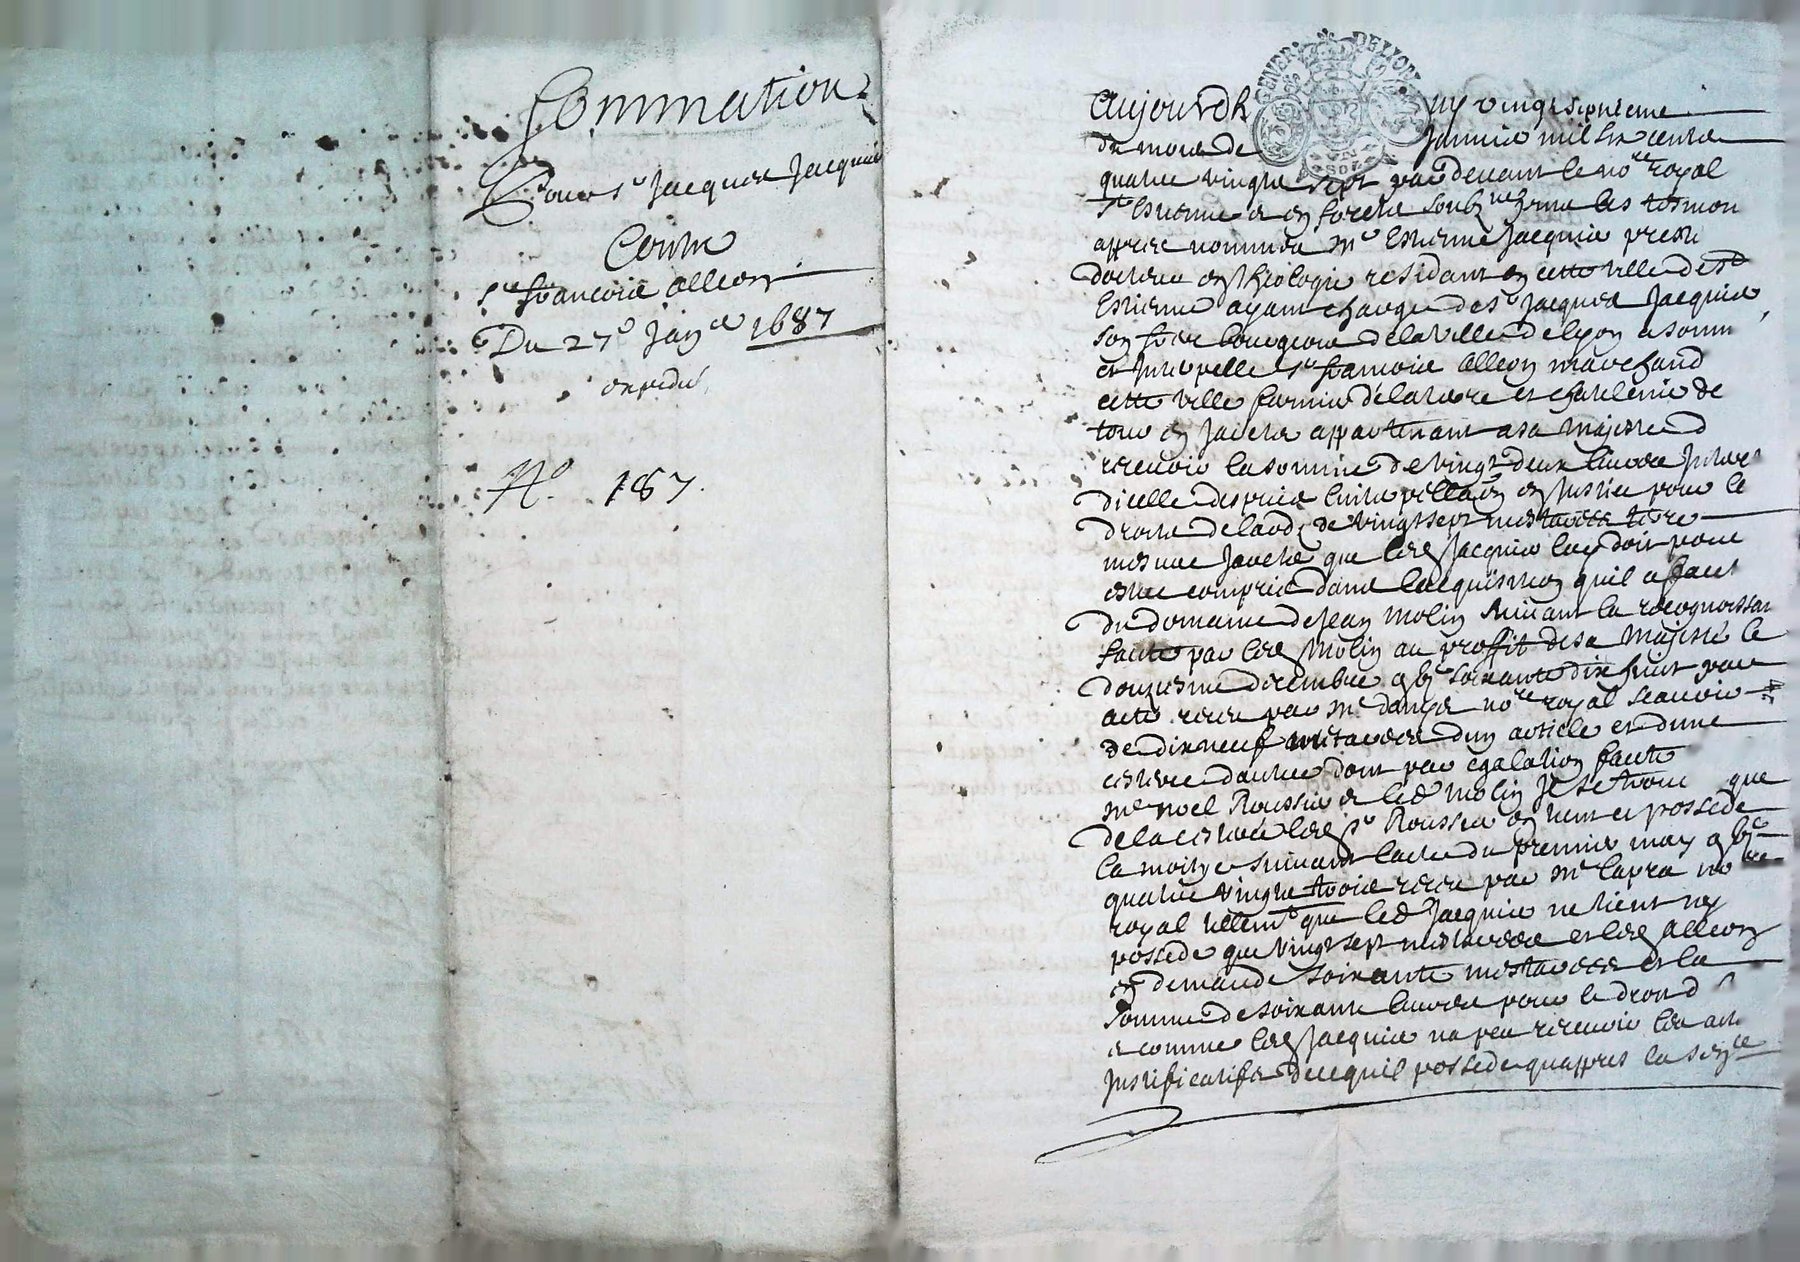 Sommation
Pour Sr Jacques Jacquier
Contre
Sr francois Alleon
Du 27e Janer 1687
expedié
No. 187.
GENER. DE LYON
SOL
Aujourdhuy vingt septieme
du mois de Janvier mil six cents
quatre vingts sept pardevant le nore royal
St Estienne en forest soubzne les tesmoins
appres nommes Mre Estienne Jacquier prestre
docteur en theologie residant en cette ville de St
Estienne ayant charge de Sr Jacques Jacquier
son frere bourgeois de la ville de Lyon a somme
et Interpelle Sr francois Alleon marchand
cette ville fermier de la rente et chatelenie de
en Jarestz appartenant a sa Majesté d
recevoir la somme de vingt deux livres
dicelle despuis linterpellaon en Justice pour le
droit de laodz de vingt sept mestairees terre
mesure que led Jacquier luy doit pour
estre compris dans lacquisition quil a fait
du domaine de Jean Molin suivant la recognoissan
faite par led Molin au proffit de sa Majesté le
douziesme decembre gbc soixante dix huit par
acte receu par Me nore royal scavoir
de dix neuf mestairees dun article et dune
dautre dont par egalation faite
Me Noel Roussier et led Molin Il se trouve que
de la led Sr Roussier en tient et possede
la moitye suivant lacte du premier may gbc
quatre vingts trois receu par Me Lapra nore
royal tellemt que led Jacquier ne tient ny
possede que vingt sept mestairees et led Alleon
en demande soixante mestairees et la
somme de soixante livres pour le droit d
et comme led Jacquier na peu recevoir les acte
Justificatifs de ce quil possede quappres la